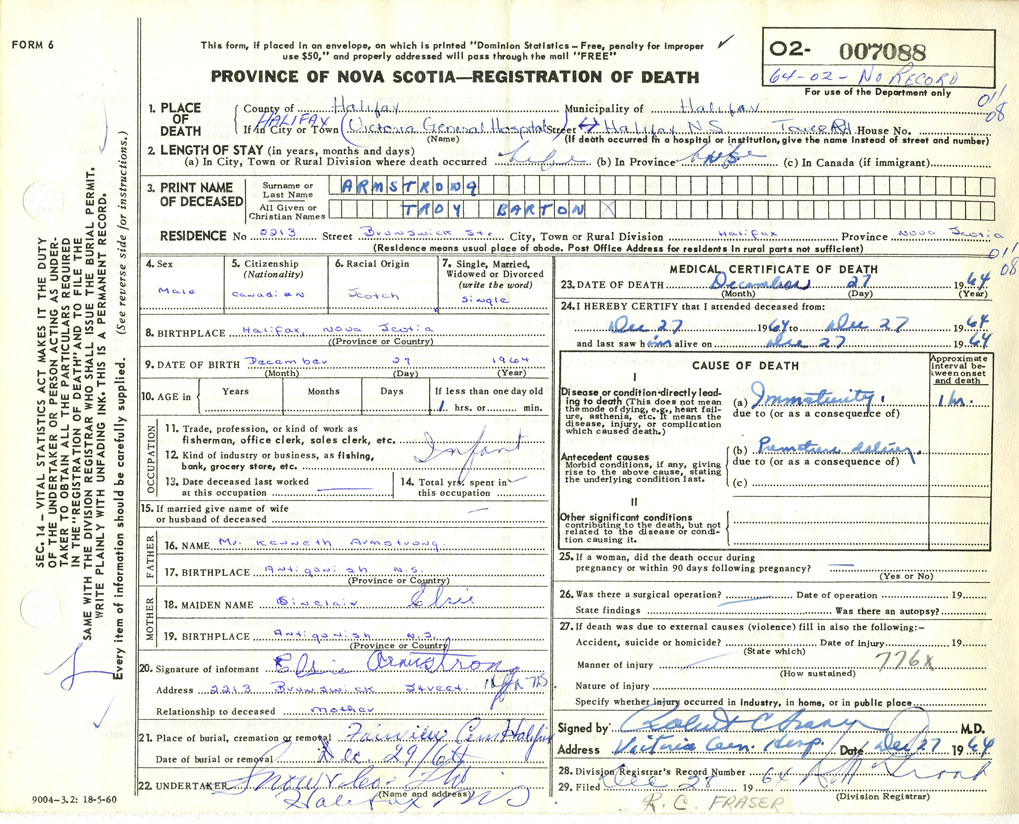 FORM 6
This form, if placed in an envelope, on which is printed "Dominion Statistics – Free, penalty for improper
use $50," and properly addressed will pass through the mail "FREE"
PROVINCE OF NOVA SCOTIA—REGISTRATION OF DEATH
02- 007088
64-02- NO RECORD
For use of the Department only
01/08
SEC. 14 – VITAL STATISTICS ACT MAKES IT THE DUTY
OF THE UNDERTAKER OR PERSON ACTING AS UNDER-
TAKER TO OBTAIN ALL THE PARTICULARS REQUIRED
IN THE "REGISTRATION OF DEATH" AND TO FILE THE
SAME WITH THE DIVISION REGISTRAR WHO SHALL ISSUE THE BURIAL PERMIT.
WRITE PLAINLY WITH UNFADING INK. THIS IS A PERMANENT RECORD.
Every item of information should be carefully supplied. (See reverse side for instructions.)
1. PLACE OF DEATH
County of Halifax Municipality of Halifax
If in City or Town HALIFAX (Victoria General Hospital Street Halifax N.S. Tower Rd House No.
(Name) (If death occurred in a hospital or institution, give the name instead of street and number)
2. LENGTH OF STAY (in years, months and days)
(a) In City, Town or Rural Division where death occurred life (b) In Province life (c) In Canada (if immigrant)
3. PRINT NAME OF DECEASED
Surname or Last Name ARMSTRONG
All Given or Christian Names TROY BARTON
RESIDENCE No 2213 Street Brunswick Str. City, Town or Rural Division Halifax Province Nova Scotia
(Residence means usual place of abode. Post Office Address for residents in rural parts not sufficient)
4. Sex Male
5. Citizenship (Nationality) Canadian
6. Racial Origin Scotch
7. Single, Married, Widowed or Divorced (write the word) Single
8. BIRTHPLACE Halifax, Nova Scotia
(Province or Country)
9. DATE OF BIRTH December 27 1964
(Month) (Day) (Year)
10. AGE in Years Months Days If less than one day old
1 hrs. or min.
OCCUPATION
11. Trade, profession, or kind of work as
fisherman, office clerk, sales clerk, etc. Infant
12. Kind of industry or business, as fishing,
bank, grocery store, etc.
13. Date deceased last worked
at this occupation
14. Total yrs. spent in
this occupation
15. If married give name of wife
or husband of deceased
FATHER
16. NAME Mr. Kenneth Armstrong
17. BIRTHPLACE Antigonish N.S.
(Province or Country)
MOTHER
18. MAIDEN NAME Sinclair Elsie
19. BIRTHPLACE Antigonish N.S.
(Province or Country)
20. Signature of informant Elsie Armstrong
Address 2213 Brunswick Street.
Relationship to deceased mother
21. Place of burial, cremation or removal Fairview Cem Halifax
Date of burial or removal Dec. 29/64
22. UNDERTAKER Snow & Co Ltd
(Name and address) Halifax NS
9004—3.2: 18-5-60
01/08
MEDICAL CERTIFICATE OF DEATH
23. DATE OF DEATH December 27 1964
(Month) (Day) (Year)
24. I HEREBY CERTIFY that I attended deceased from:
Dec 27 1964 to Dec 27 1964
and last saw him alive on Dec 27 1964
CAUSE OF DEATH
Approximate interval between onset and death
I
Disease or condition directly lead-
ing to death (This does not mean
the mode of dying, e.g., heart fail-
ure, asthenia, etc. It means the
disease, injury, or complication
which caused death.)
(a) Immaturity. 1 hr.
due to (or as a consequence of)
Antecedent causes
Morbid conditions, if any, giving
rise to the above cause, stating
the underlying condition last.
(b) Premature delivery.
due to (or as a consequence of)
(c)
II
Other significant conditions
contributing to the death, but not
related to the disease or condi-
tion causing it.
25. If a woman, did the death occur during
pregnancy or within 90 days following pregnancy?
(Yes or No)
26. Was there a surgical operation? Date of operation 19
State findings Was there an autopsy?
27. If death was due to external causes (violence) fill in also the following:–
Accident, suicide or homicide? Date of injury 19
(State which)
Manner of injury 776x
(How sustained)
Nature of injury
Specify whether injury occurred in industry, in home, or in public place
Signed by M.D.
Address Victoria Gen. Hosp. Date Dec 27 1964
28. Division Registrar's Record Number
29. Filed Dec 28 1964
(Division Registrar)
R. C. FRASER